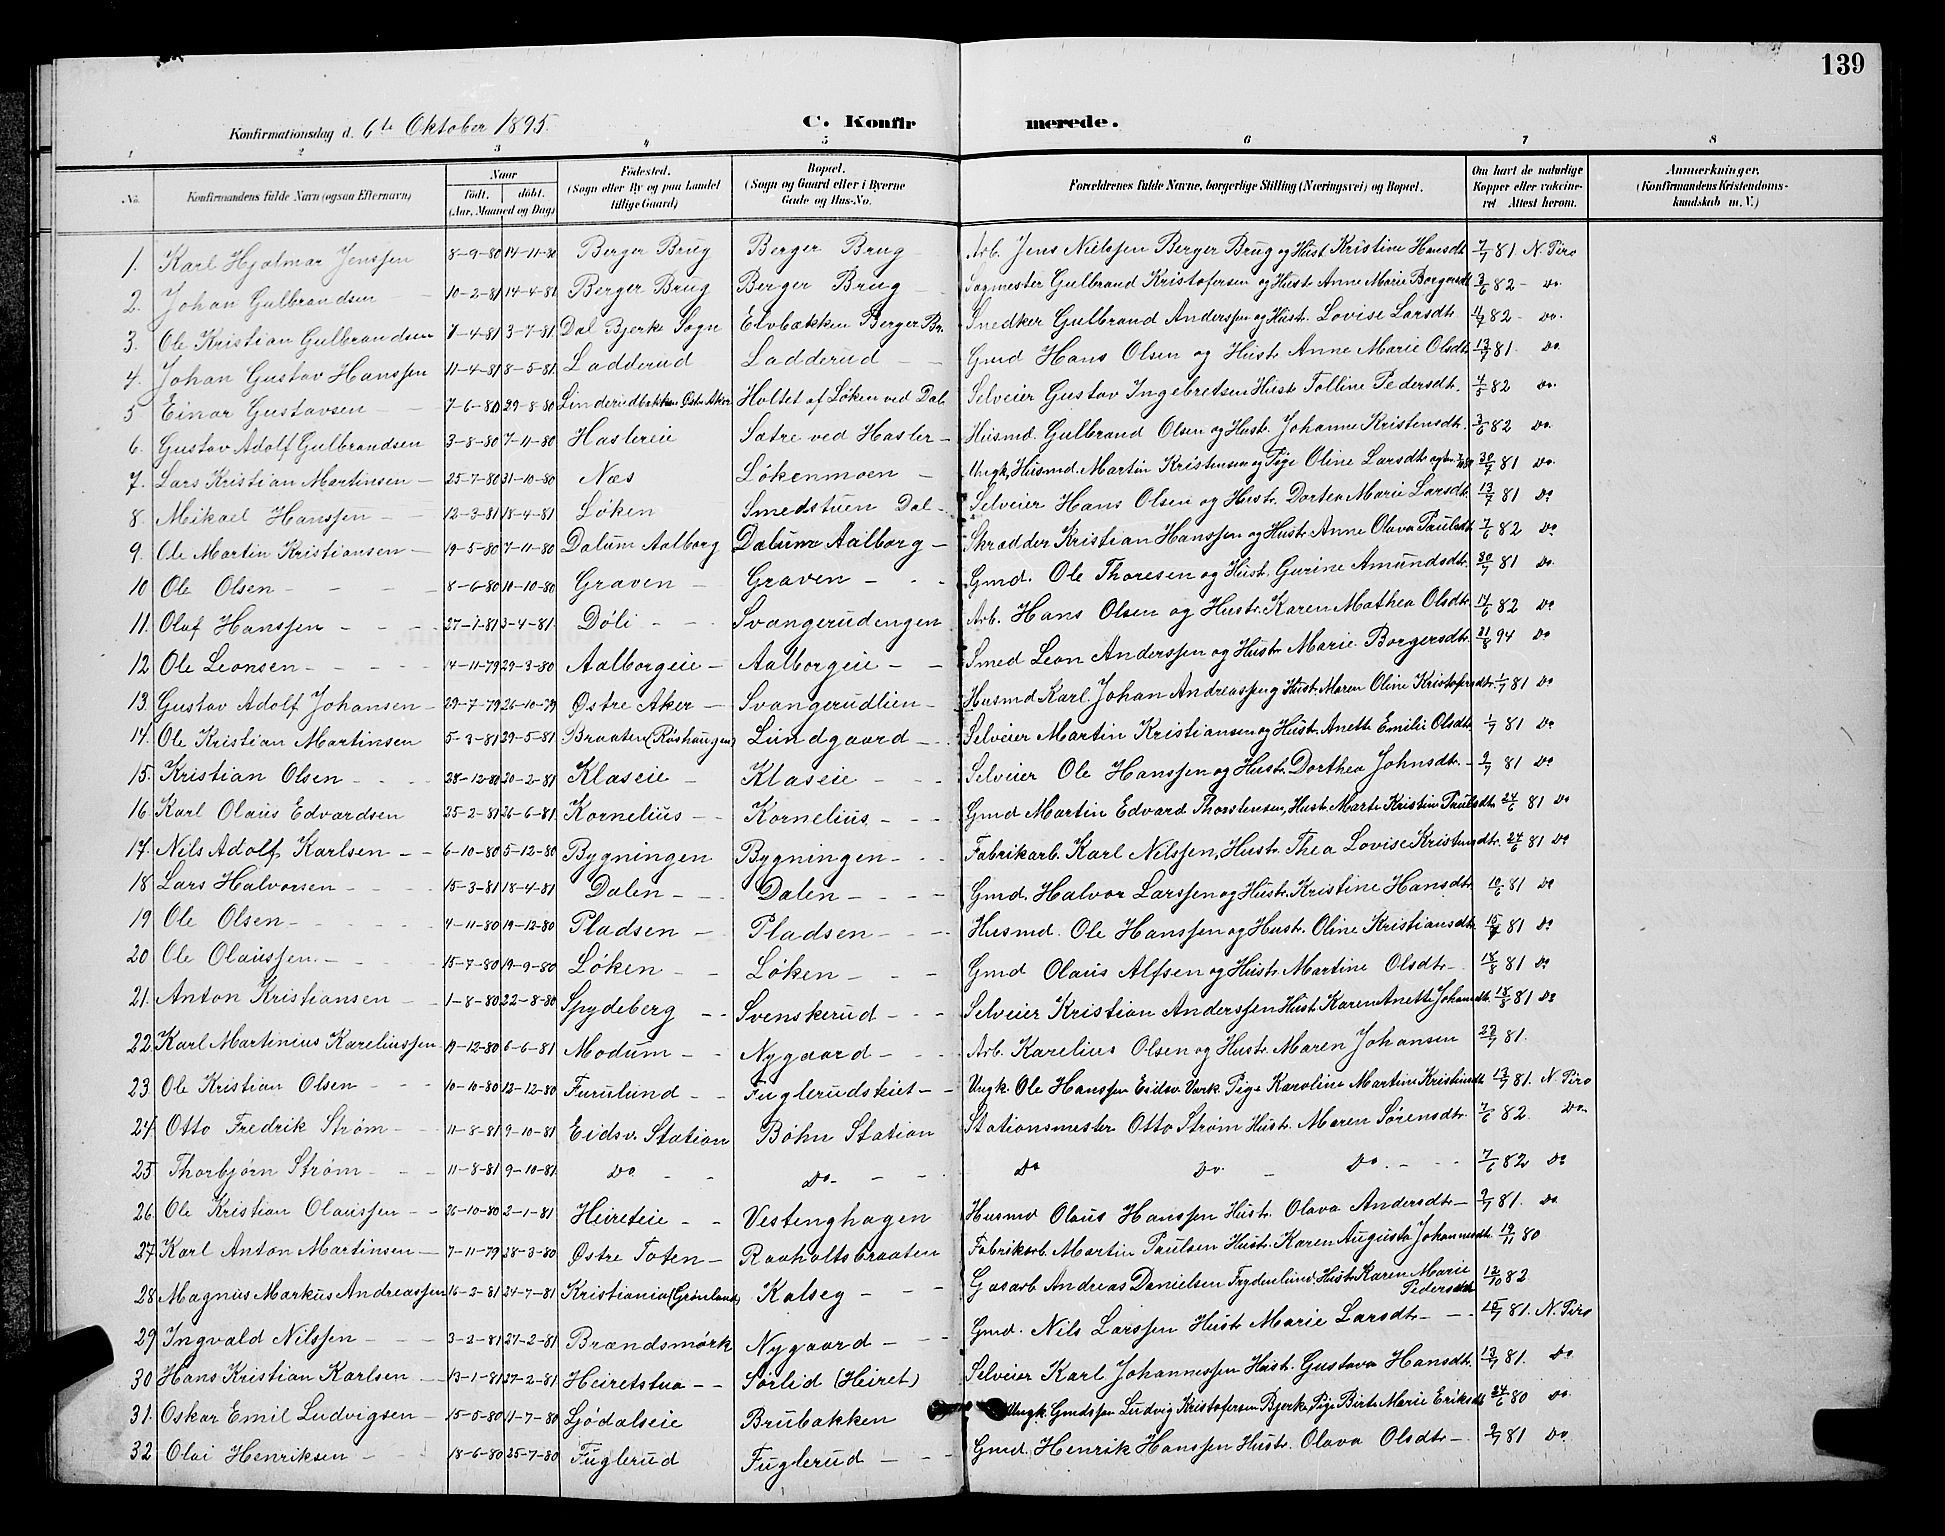 139
Konfirmationsdag d. 6te Oktober 1895. C. Konfirmerede.
1 2 3 4 5 6 7 8
No. Konfirmandens fulde Navn (ogsaa Efternavn) Naar född. döbt. (Aar, Maaned og Dag) Födested. (Sogn eller By og paa Landet tillige Gaard) Bopæl. (Sogn og Gaard eller i Byerne Gade og Hus-No. Forældrenes fulde Navne, borgerlige Stilling (Næringsvei) og Bopæl. Om havt de naturlige Kopper eller vaccineret Attest herom. Anmærkninger. (Konfirmandens Kristendomskundskab m. V.)
1. Karl Hjalmar Jenssen 8-9-80 14-11-80 Berger Brug Berger Brug Arb. Jens Nielssen Berger Brug og Hust Kristine Hansdt. 7/7 81 N. Piro
2. Johan Gulbrandsen 10-2-81 14-4-81 Berger Brug Berger Brug Sagmester Gulbrand Kristofersen og Hustr Anne Marie Borgersdt 3/6 82 - Do.
3. Ole Kristian Gulbrandsen 7-4-81 3-7-81 Dal Bjerke Sogn Elvbakken Berger Br. Snedker Gulbrand Anderssen og Hust. Lovise Larsdt. 4/7 82 - Do.
4. Johan Gustav Hanssen 11-4-81 8-5-81 Ladderud Ladderud Gmd Hans Olsen og Hustr Anne Marie Olsdt. 13/7 81. Do
5 Einar Gustavsen 7-6-80 29-8-80 Linderudbakken Østre Aker Holtet af Løken ved Dal. Selveier Gustav Ingebretsen Hust Tolline Pedersdt. 4/5 82 Do.
6. Gustav Adolf Gulbrandsen 3-8-80 7-11-80 Haslereie Sætre ved Hasler Husmd. Gulbrand Olsen og Hustr. Johanne Kristensdt. 3/6 82 Do.
7. Lars Kristian Martinsen 25-7-80 31-10-80 Næs Løkenmoen Ungk. Husmd. Martin Kristensen og Pige Oline Larsdt 30/7 81 Do.
8. Mikael Hanssen 12-3-81 18-4-81 Løken Smedstuen Dal Selveier Hans Olsen og Hustr. Dortea Marie Larsdt. 13/7 81 Do
9. Ole Martin Kristiansen 19-5-80 7-11-80 Dalum Aalborg Dalum Aalborg Skrædder Kristian Hanssen og Hustr Anne Olava Paulsdt 7/6 82 Do
10 Ole Olsen 8-6-80 10-10-80 Graven Graven Gmd. Ole Thoresen og Hust. Gurine Amundsdt. 30/7 81 Do.
11. Olaf Hanssen 27-1-81 3-4-81. Døli Svangerudengen Arb. Hans Olsen og Hustr. Karen Mathea Olsdt. 14/6 82 Do
12 Ole Leonsen 14-11-79 29-3-80 Aalborgeie Aalborgeie Smed Leon Anderssen og Hustr Marie Borgersdt. 21/8 94 Do
13. Gustav Adolf Johansen 29-7-79 26-10-79 Østre Aker Svangerudlien Husmd Karl Johan Andreassen og Hust. Maren Oline Kristofersdt. 1/7 81 Do
14. Ole Kristian Martinsen 5-3-81 29-5-81 Braaten (Røshaugen) Lundgaard Selveier Martin Kristiansen og Hustr. Anette Emilie Olsdt. 1/7 81 Do
15. Kristian Olsen 28-12-80 20-2-81 Klaseie Klaseie Selveier Ole Hanssen og Hust. Dorthea Johnsdt. 2/7 81 Do
16 Karl Olaus Edvardsen 25-2-81 26-6-81 Kornelius Kornelius Gmd Martin Edvard Thorstensen, Hust. Marte Kristine Paulsdt. 24/6 81 Do
17. Nils Adolf Karlsen 6-10-80 5-12-80 Bygningen Bygningen Fabrikarb. Karl Nilssen, Hustr. Thea Lovise Kristensdt. 24/6 81 Do
18 Lars Halvorsen 15-3-81 18-4-81 Dalen Dalen Gmd. Halvor Larssen og Hustr. Kristine Hansdt. 10/6 81 Do
19 Ole Olsen 4-11-80 19-12-80 Pladsen Pladsen Husmd. Ole Hanssen og Hustr. Oline Kristiansdt. 15/7 81 Do
20 Ole Olaussen 15-7-80 19-9-80 Løken Løken Gmd Olaus Alfsen og Hustr. Martine Olsdt. 18/8 81 Do
21. Anton Kristiansen 1-8-80 22-8-80 Spydeberg Svenskerud Selveier Kristian Anderssen Hust. Karen Anette Johansdt. 18/8 81 Do
22. Karl Martinius Kareliussen 19-12-80 6-6-81 Modum Nygaard Arb. Karelius Olsen og Hustr. Maren Johansen 22/7 81.
23 Ole Kristian Olsen 10-10-80 12-12-80 Furulund Fuglerudskiet Ungk Ole Hanssen Eidsv. Værk Pige Karoline Martine Kristiansdt 13/7 81. N. Piro
24 Otto Fredrik Strøm 11-8-81 9-10-81 Eidsv. Station Bøhn Station Stationsmester Otto Strøm Hustr. Maren Sørensdt. 7/6 82. Do
25 Thorbjørn Strøm 11-8-81 9-10-81. Do Do Do Do. Do. 7/6 82 Do
26 Ole Kristian Olaussen 26-10-80 2-1-81 Heireteie Vestenghagen Husmd Olaus Hanssen Hustr. Olava Andersdt. 2/7 81. Do
27 Karl Anton Martinsen 7-11-79 28-3-80 Østre Toten Raaholtsbraaten Fabrikarb. Martin Paulsen Hustr. Karen Augusta Johannesdt. 19/11 80
28 Magnus Markus Andreassen 16-2-81 24-7-81 Kristiania (Grønland) Kalseg Gaarb Andreas Danielsen Frydenlund, Hust. Karen Marie Pedersdt 12/10 82
29 Ingvald Nilssen 3-2-81 27-2-81 Brændsmørk Nygaard Gmd. Nils Larssen Hustr Marie Larsdt. 15/7 81. N. Piro
30 Hans Kristian Karlsen 13-1-81 27-2-81 Heiretstua Sørlid (Heiret) Selveier Karl Johannessen Hust. Gustava Hansdt. 13/7 81. Do
31. Oskar Emil Ludvigsen 15-5-80 11-7-80 Ljødalseie Brubakken Ungk. Gmdssøn Ludvig Kristofersen Bjerke, Pige Birte Marie Eriksdt. 24/6 80 Do.
32 Olai Henriksen 18-6-80 25-7-80 Fuglerud Fuglerud Gmd. Henrik Hanssen Hustr. Olava Olsdt. 2/7 81 Do.